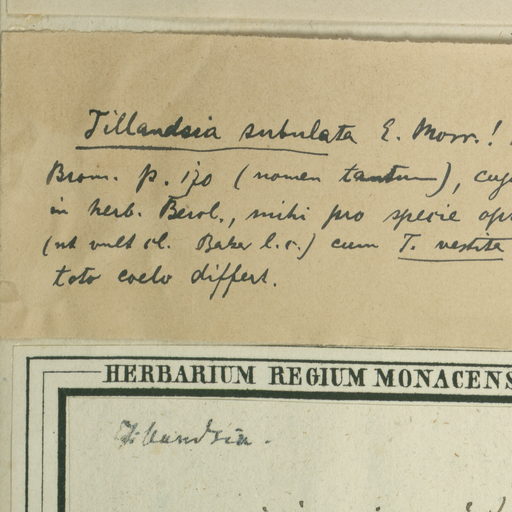 Tillandsia subulata E. Morr.!
Brom. p. 170 (nomen tantum), cuj
in herb. Berol., mihi pro specie op
(ut vult cl. Baker l.c.) cum T. vestita
toto coelo differt.
HERBARIUM REGIUM MONACENS
Tillandsia.